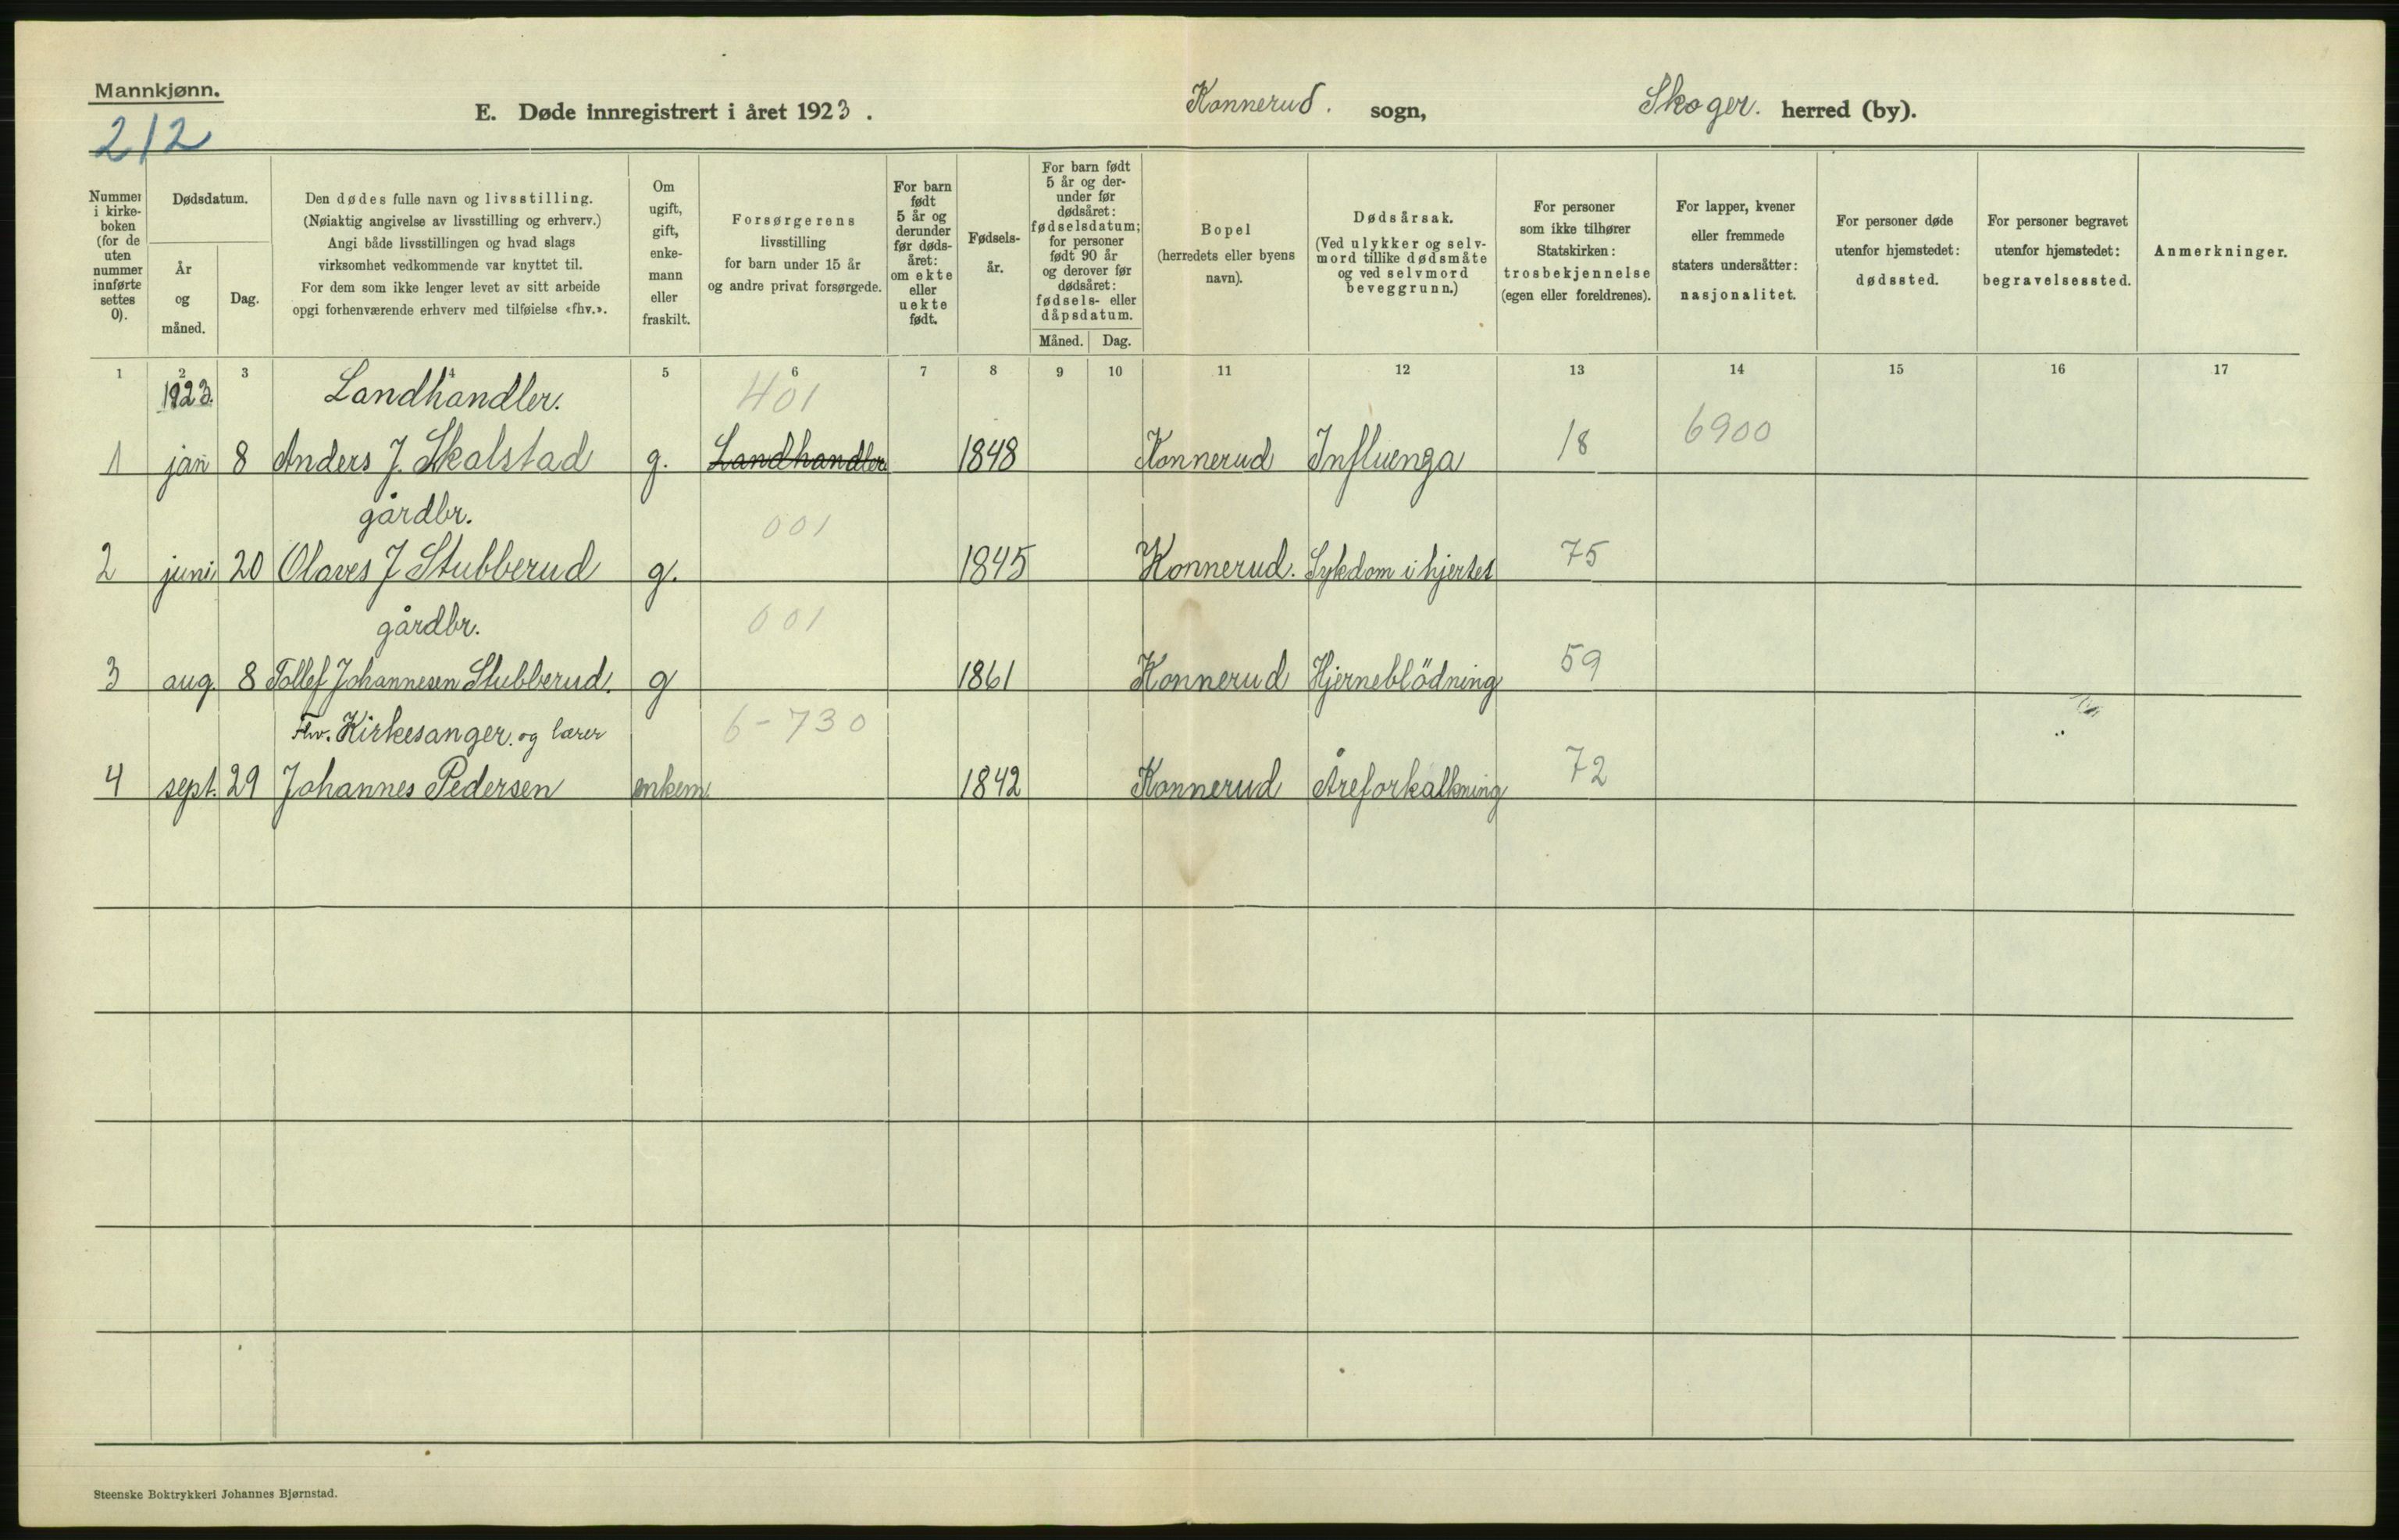 Mannkjønn.
212
E. Døde innregistrert i året 1923. Konnerud. sogn, Skoger. herred (by).
Nummer i kirke-boken (for de uten nummer innførte settes 0).
Dødsdatum.
År og måned.
Dag.
Den dødes fulle navn og livsstilling.
(Nøiaktig angivelse av livsstilling og erhverv.)
Angi både livsstillingen og hvad slags
virksomhet vedkommende var knyttet til.
For dem som ikke lenger levet av sitt arbeide
opgi forhenværende erhverv med tilføielse «fhv.».
Om ugift, gift, enke-mann eller fraskilt.
Forsørgerens
livsstilling
for barn under 15 år
og andre privat forsørgede.
For barn født 5 år og derunder før døds-året: om ekte eller uekte født.
Fødsels-år.
For barn født 5 år og der-under før dødsåret: fødselsdatum; for personer født 90 år og derover før dødsåret: fødsels- eller dåpsdatum.
Måned. Dag.
Bopel
(herredets eller byens
navn).
Dødsårsak.
(Ved ulykker og selv-
mord tillike dødsmåte
og ved selvmord
beveggrunn.)
For personer
som ikke tilhører
Statskirken:
trosbekjennelse
(egen eller foreldrenes).
For lapper, kvener
eller fremmede
staters undersåtter:
nasjonalitet.
For personer døde
utenfor hjemstedet:
dødssted.
For personer begravet
utenfor hjemstedet:
begravelsessted.
Anmerkninger.
1 2 3 4 5 6 7 8 9 10 11 12 13 14 15 16 17
1923. Landhandler. 401
1 jan 8 Anders J. Skalstad g. Landhandler 1848 Konnerud Influenga 18 6900
gårdbr. 001
2 juni 20 Olaves J. Stubberud g. 1845 Konnerud. Sykdom i hjertet 75
gårdbr. 001
3 aug. 8 Tollef Johannesen Stubberud. g 1861 Konnerud Hjerneblödning 59
Fhv. Kirkesanger. og lærer 6-730
4 sept. 29 Johannes Pedersen enkem. 1842 Konnerud Åreforkalkning 72
Steenske Boktrykkeri Johannes Bjørnstad.